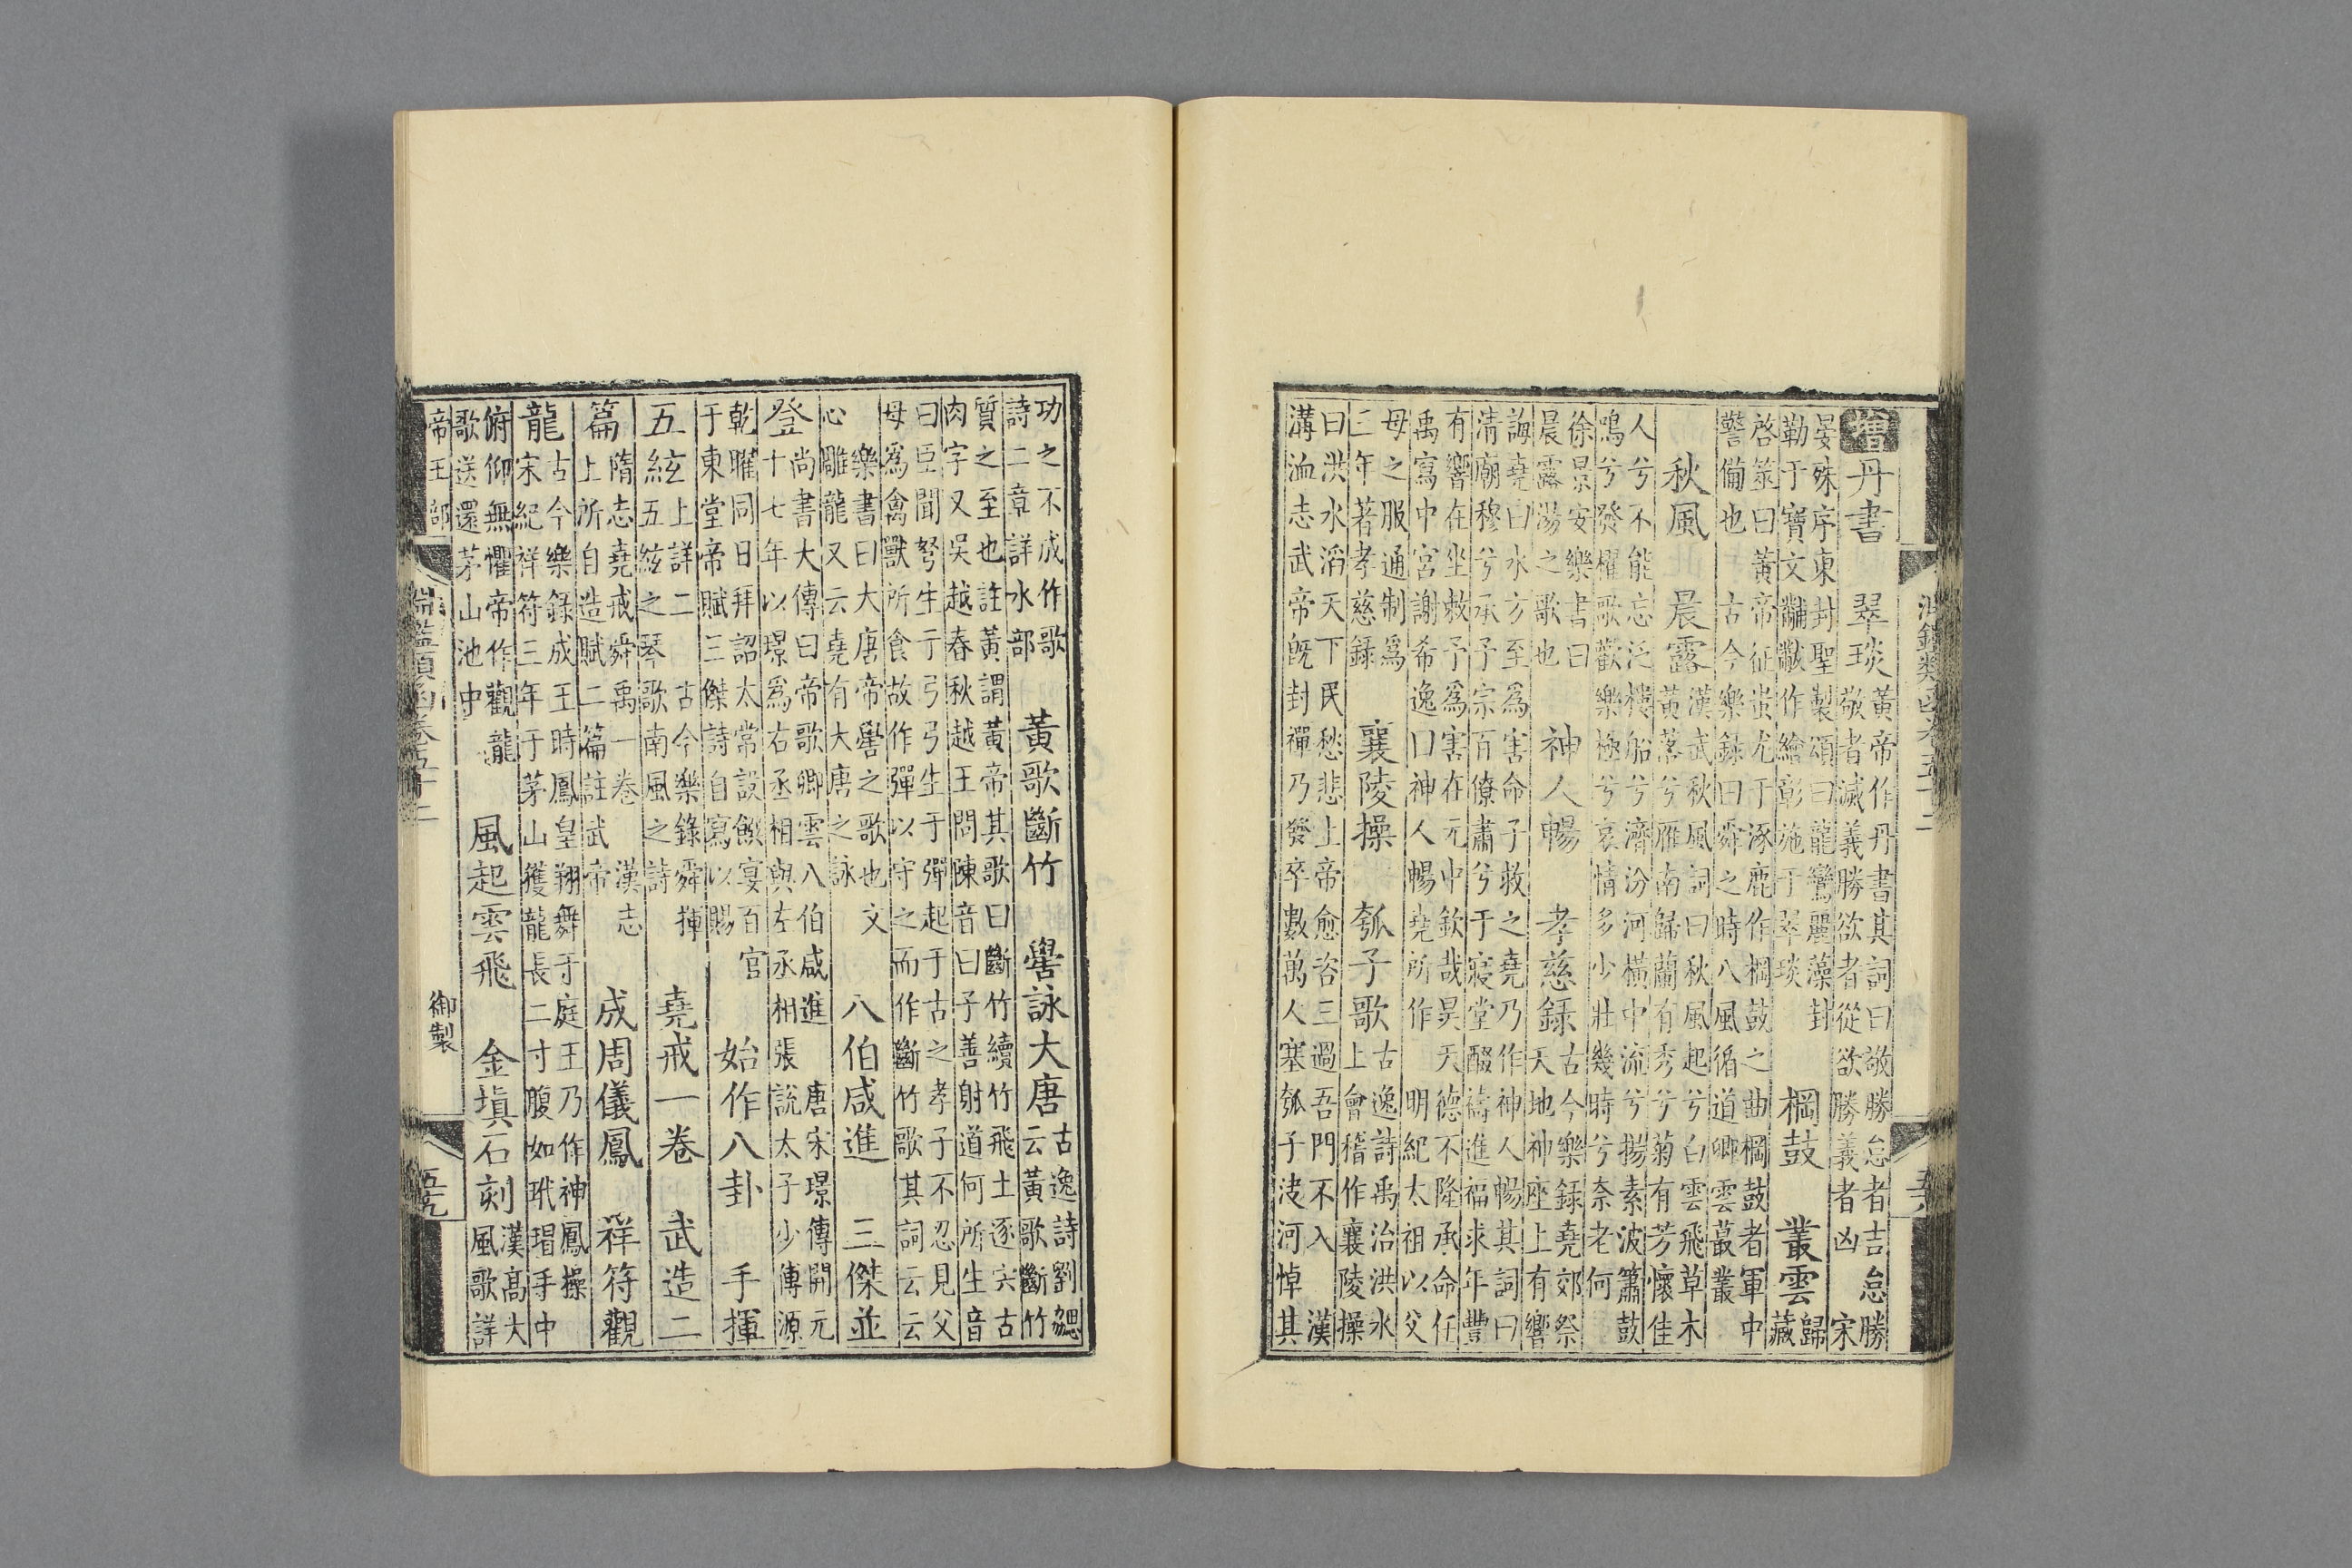 淵鑑類函卷五十二
增 丹書 翠琰 黃帝作丹書其詞曰敬勝怠者吉怠勝
敬者滅義勝欲者從欲勝義者凶 宋
晏殊序東封聖製頌曰龍鸞麗藻封
勒于寶文黼黻作繪彰施于翠琰 棡鼓 叢雲 歸
藏
啓筮曰黃帝征蚩尤于涿鹿作棡鼓之曲棡鼓者軍中
警備也 古今樂錄曰舜之時八風循道卿雲蕞叢
秋風 晨露 漢武秋風詞曰秋風起兮白雲飛草木
黃落兮雁南歸蘭有秀兮菊有芳懷佳
人兮不能忘泛樓船兮濟汾河橫中流兮揚素波簫鼓
鳴兮發櫂歌歡樂極兮哀情多少壯幾時兮奈老何
徐景安樂書曰
晨露湯之歌也 神人暢 孝慈錄 古今樂錄堯郊祭
天地神座上有響
誨堯曰水方至爲害命子救之堯乃作神人暢其詞曰
清廟穆兮承予宗百僚肅兮于寢堂醊禱進福求年豐
有響在坐敕予爲害在元中欽哉昊天德不隆承命任
禹寫中宮謝希逸曰神人暢堯所作 明紀太祖以父
母之服通制爲
三年著孝慈錄 襄陵操 瓠子歌 古逸詩禹治洪水
上會稽作襄陵操
曰洪水滔天下民愁悲上帝愈咨三過吾門不入 漢
溝洫志武帝旣封禪乃發卒數萬人塞瓠子決河悼其
功之不成作歌
詩二章詳水部 黃歌斷竹 嚳詠大唐 古逸詩劉勰
云黃歌斷竹
質之至也註黃謂黃帝其歌曰斷竹續竹飛土逐宍古
肉字又吳越春秋越王問陳音曰子善射道何所生音
曰臣聞弩生于弓弓生于彈彈起于古之孝子不忍見父
母爲禽獸所食故作彈以守之而作斷竹歌其詞云云
樂書曰大唐帝嚳之歌也文
心雕龍又云堯有大唐之詠 八伯咸進 三傑並
登 尚書大傳曰帝歌卿雲八伯咸進 唐宋璟傳開元
十七年以璟爲右丞相與左丞相張說太子少傳源
乾曜同日拜詔太常設餙宴百官
于東堂帝賦三傑詩自寫以賜 始作八卦 手揮
五絃 上詳二 古今樂錄舜揮
五絃之琴歌南風之詩 堯戒一卷 武造二
篇 隋志堯戒舜禹一卷 漢志
上所自造賦二篇註武帝 成周儀鳳 祥符觀
龍 古今樂錄成王時鳳皇翔舞于庭王乃作神鳳操
宋紀祥符三年于茅山獲龍長二寸腹如玳瑁手中
俯仰無懼帝作觀龍
歌送還茅山池中 風起雲飛 金塡石刻 漢高大
風歌詳
帝王部 淵鑑類函卷五十二 御製